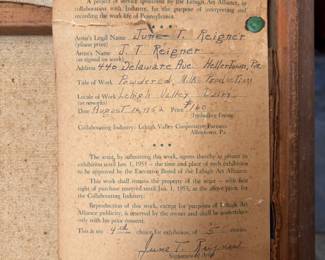 A project of service sponsored by the Lehigh Art Alliance, in
collaboration with Industry, for the purpose of interpreting and
recording the work-life of Pennsylvania.
Artist's Legal Name June T. Reigner
(please print)
Artist's Name J. T. Reigner
(as signed on work)
Address 440 Delaware Ave Hellertown, Pa
Title of Work Powdered Milk Production
Locale of Work Lehigh Valley Dairy
(or remarks)
Date August 14, 1952 Price $160
Including Framing
Collaborating Industry: Lehigh Valley Cooperative Farmers
Allentown, Pa.
The artist, by submitting this work, agrees thereby to permit its
exhibition until Jan. 1, 1955 – the time and place of such exhibition
to be approved by the Executive Board of the Lehigh Art Alliance.
This work shall remain the property of the artist – with first
right of purchase reserved until Jan. 1, 1953, at the above price, for
the Collaborating Industry.
Reproduction of this work, except for purposes of Lehigh Art
Alliance publicity, is reserved by the owner and shall be undertaken
only with his prior consent.
This is my 4th choice for exhibition of 5 entries.
June T. Reigner
Signature of Artist